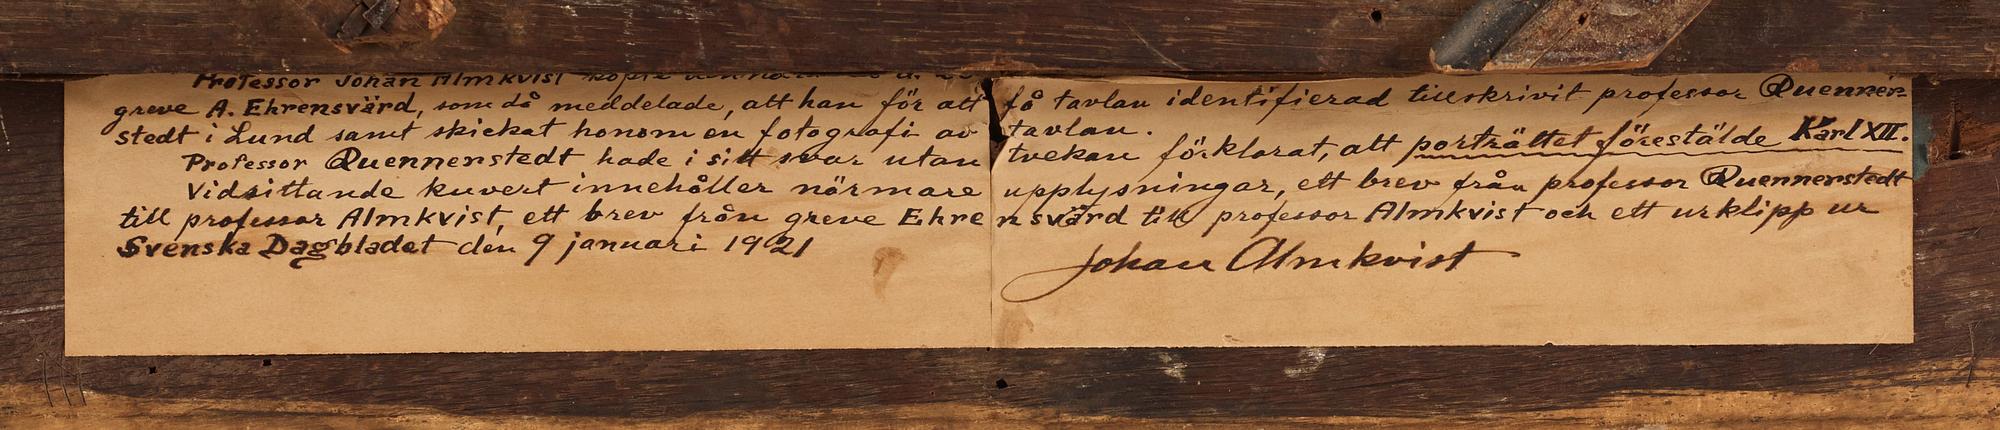 Professor Johan Almkvist köpte
greve A. Ehrensvärd, som då meddelade, att han för att få tavlan identifierad tillskrivit professor Quenner-
stedt i Lund samt skickat honom en fotografi av tavlan.
Professor Quennerstedt hade i sitt svar utan tvekan förklarat, att porträttet förestälde Karl XII.
Vidsittande kuvert innehåller närmare upplysningar, ett brev från professor Quennerstedt
till professor Almkvist, ett brev från greve Ehrensvärd till professor Almkvist och ett urklipp ur
Svenska Dagbladet den 9 januari 1921
Johan Almkvist